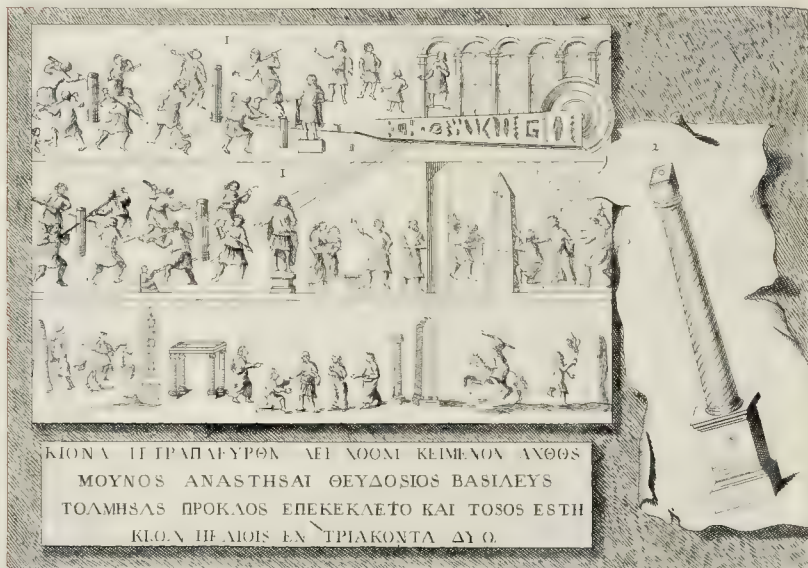 I
I
2
ΚΙΟΝΑ ΤΕΤΡΑΠΛΕΥΡΘΝ ΑΕΙ ΧΘΟΝΙ ΚΕΙΜΕΝΟΝ ΑΧΘΘS
ΜΟΥΝΟS ΑΝΑSΤΗSΑΙ ΘΕΥΔΟSΙΟS ΒΑSΙΛΕΥS
ΤΟΛΜΗSΑS ΠΡΟΚΛΟS ΕΠΕΚΕΚΛΕΤΟ ΚΑΙ ΤΟSΟS ΕSΤΗ
ΗΕΛΙΟΙS ΕΝ ΤΡΙΑΚΟΝΤΑ ΔΥΟ.